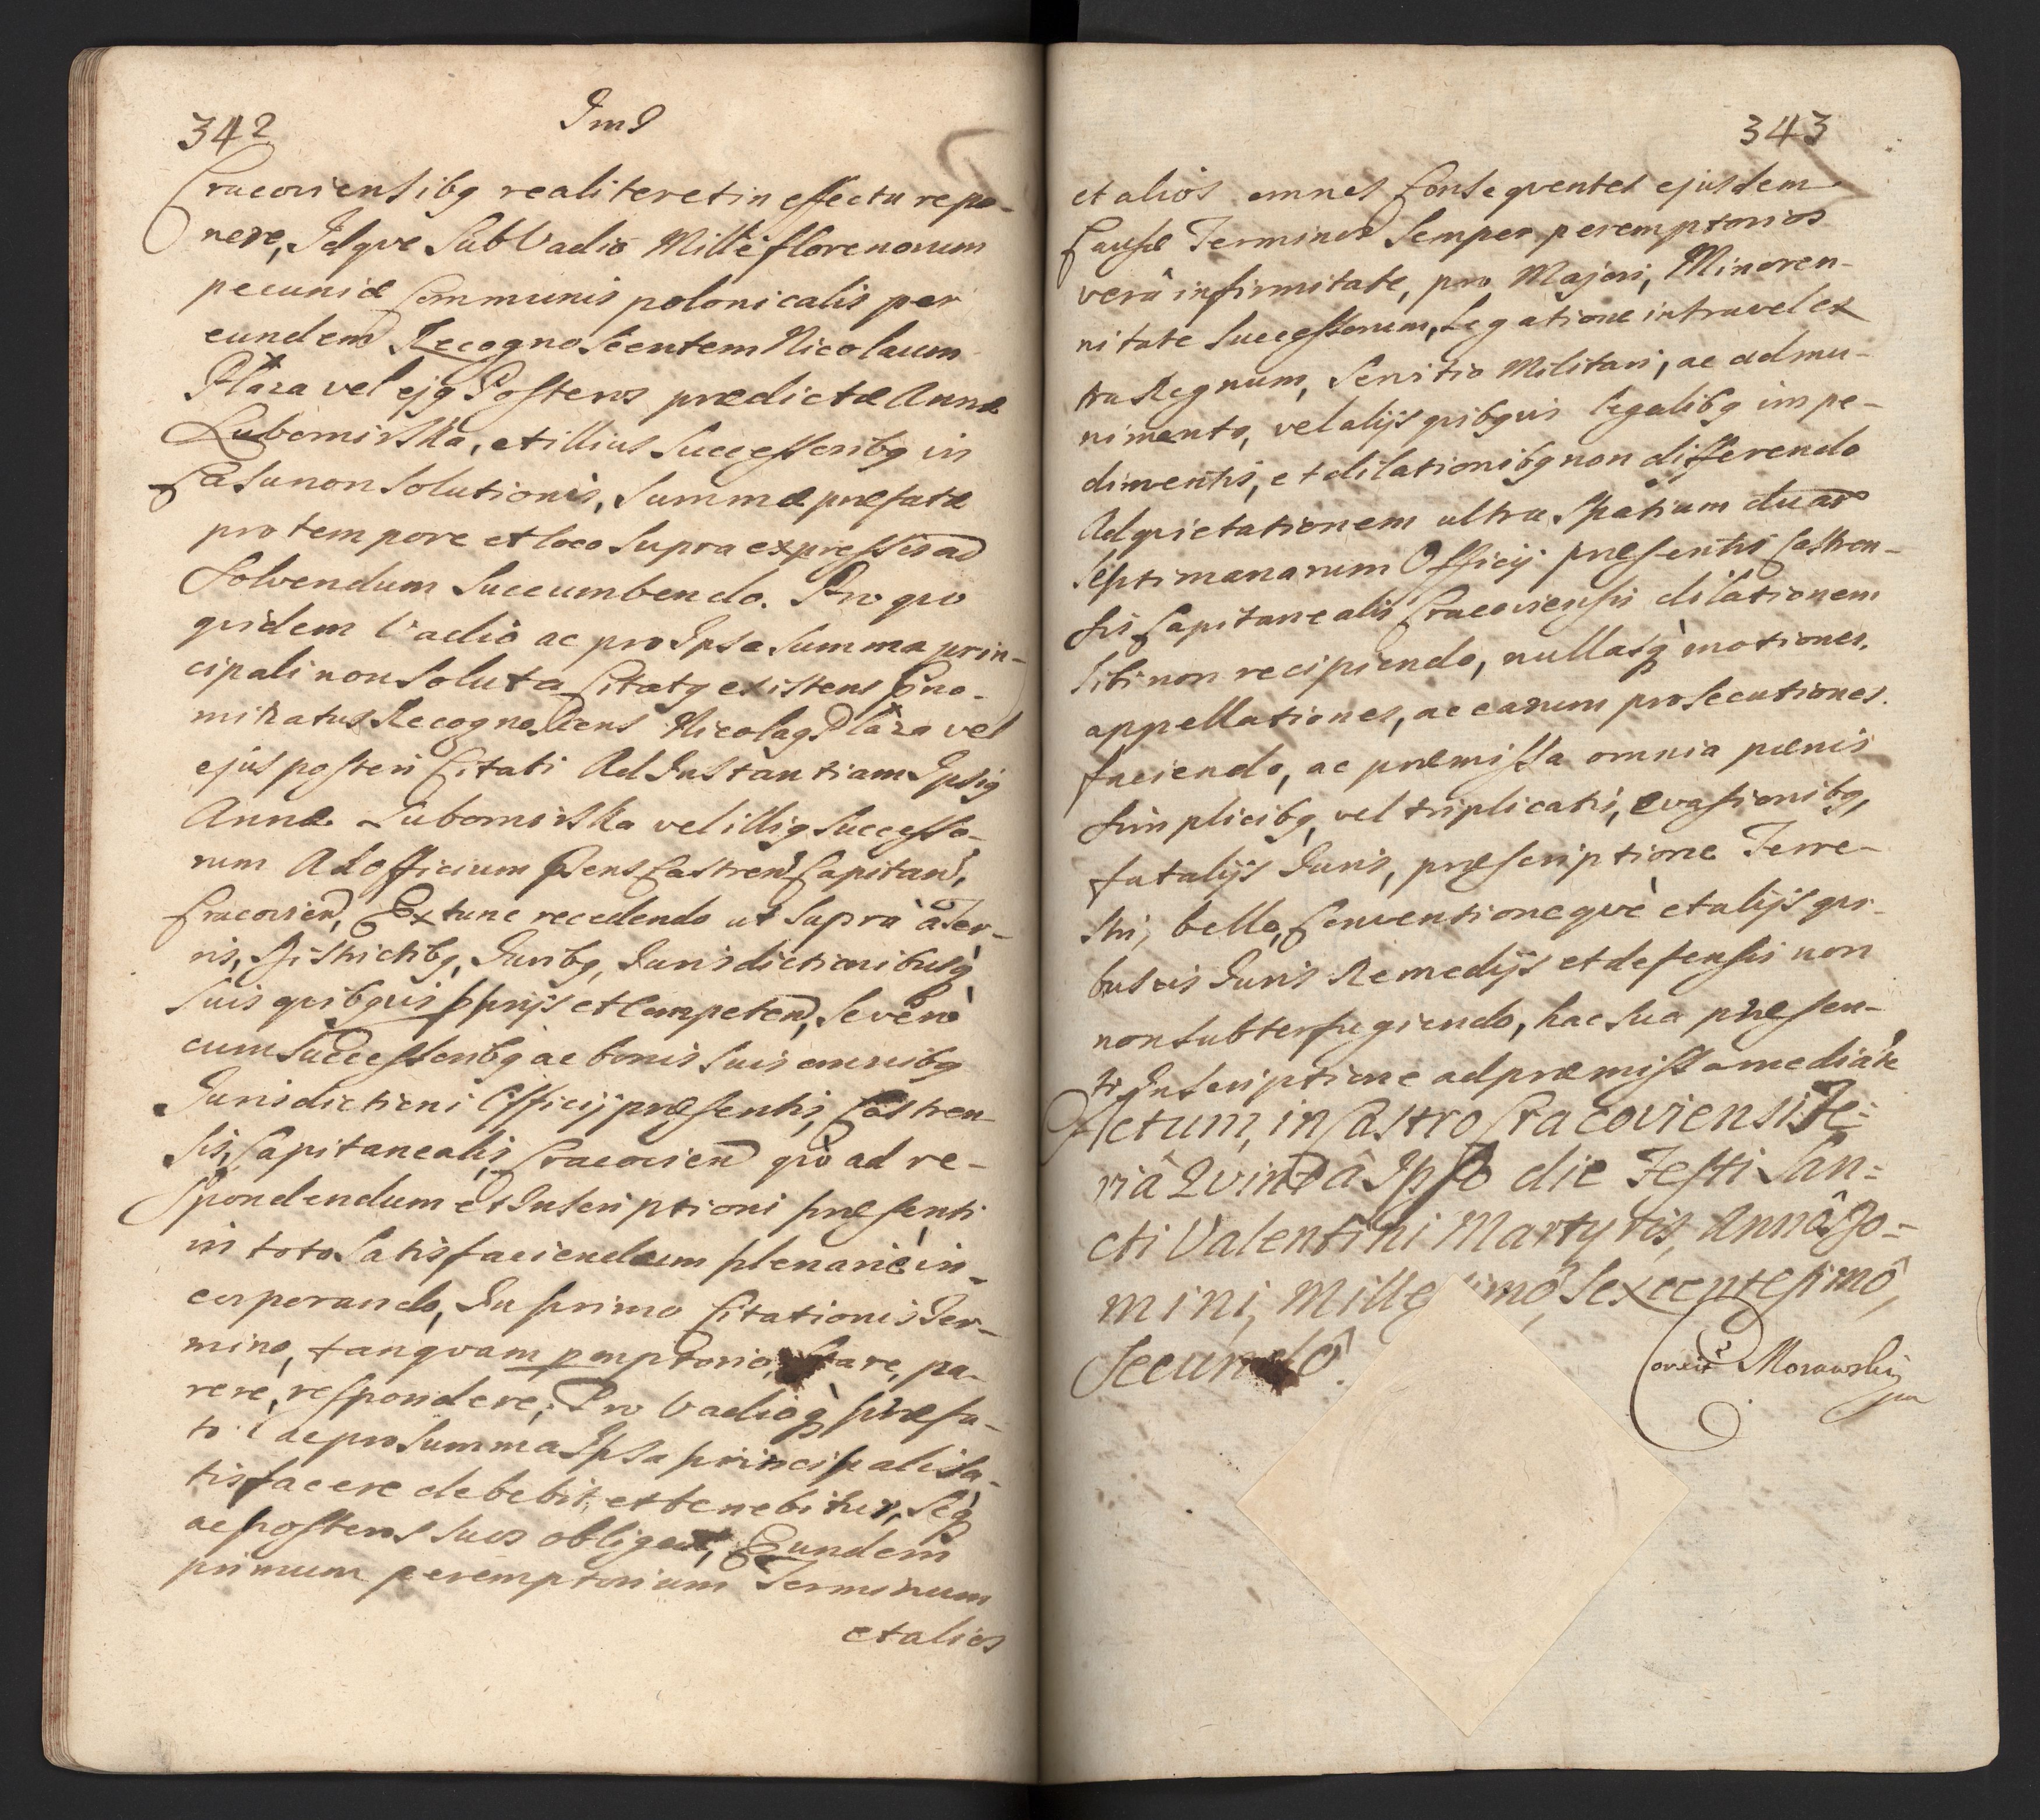 342
Cracoviensibq realiter et in effectu repo-
nere, Idqve Sub Vadio Mille florenorum
pecuniæ Communis polonicalis per
eundem Recognoscentem Nicolaum
Płaza vel ejq Posteros prædictæ Annæ
Lubomirska, et illius Successoribq in
Casu non Solutionis, Summæ præfatæ
pro tempore et loco Supra expressis ad
Solvendum Succumbendo. Pro qvo
qvidem Vadio ac pro Ipsa Summa prin-
cipali non Soluta Citatq existens Eno-
minatus Recognoscens Nicolaq Płaza vel
ejus posteri Citati Ad Instantiam Ipsiq
Annæ Lubomirska vel illiq Successo-
rum Ad Officium Psens Castren Capitan,
Cracovien, Extunc recedendo ut Supra a Ter-
ris, Districtibq, Juribq, Jurisdictionibusq
Suis qvibqvis pprijs et Competen, Se vero
cum Successoribq ac bonis Suis omnibq
Jurisdictioni Officij præsentis, Castren-
sis, Capitanealis, Cracovien qvo ad re-
Spondendum et Inscriptioni præsenti
in toto Satisfaciendum plenarie in-
corporando, In primo Citationis Ter-
mino, tanqvam pemptorio, Stare, pa-
rere, respondere, Pro Vadioq præfa-
to ac pro Summa Ipsa principali Sa-
tisfacere debebit, et tenebitur, Seq
ac posteros suos obligat, Eundem
primum peremptorium Terminum
et alios
343
et alios omnes Conseqventes ejusdem
Causæ Terminos Semper peremptorios
verâ infirmitate, pro Majori, Minoren-
nitate Successorum, Legatione intra vel ex
tra Regnum, Servitio Militari, ac admu-
nimento, vel alijs qvibqvis legalibq impe-
dimentis, et dilationibq non differendo
Ad qvietationem ultra Spatium duar
Septimanarum Officij præsentis Castren-
sis Capitanealis Cracoviensis dilationem
Sibi non recipiendo, nullasq motiones,
appellationes, ac earum prosecutiones.
faciendo, ac præmissa omnia pœnis
Simplicibq, vel triplicatis, evasionibq,
fatalijs Juris, præscriptione Terre-
stri, bello, Conventioneqve et alijs qvi-
busvis Juris Remedijs et defensis non
non Subterfugiendo, hac Sua præsen-
ti Inscriptione ad præmissa mediante
Actum, in Castro Cracoviensi Fe=
riâ Qvintâ Ipso die Festi San=
cti Valentini Martyris, Annô Do=
mini, Mille imô Sexcentesimô,
Secundô.
Morawski